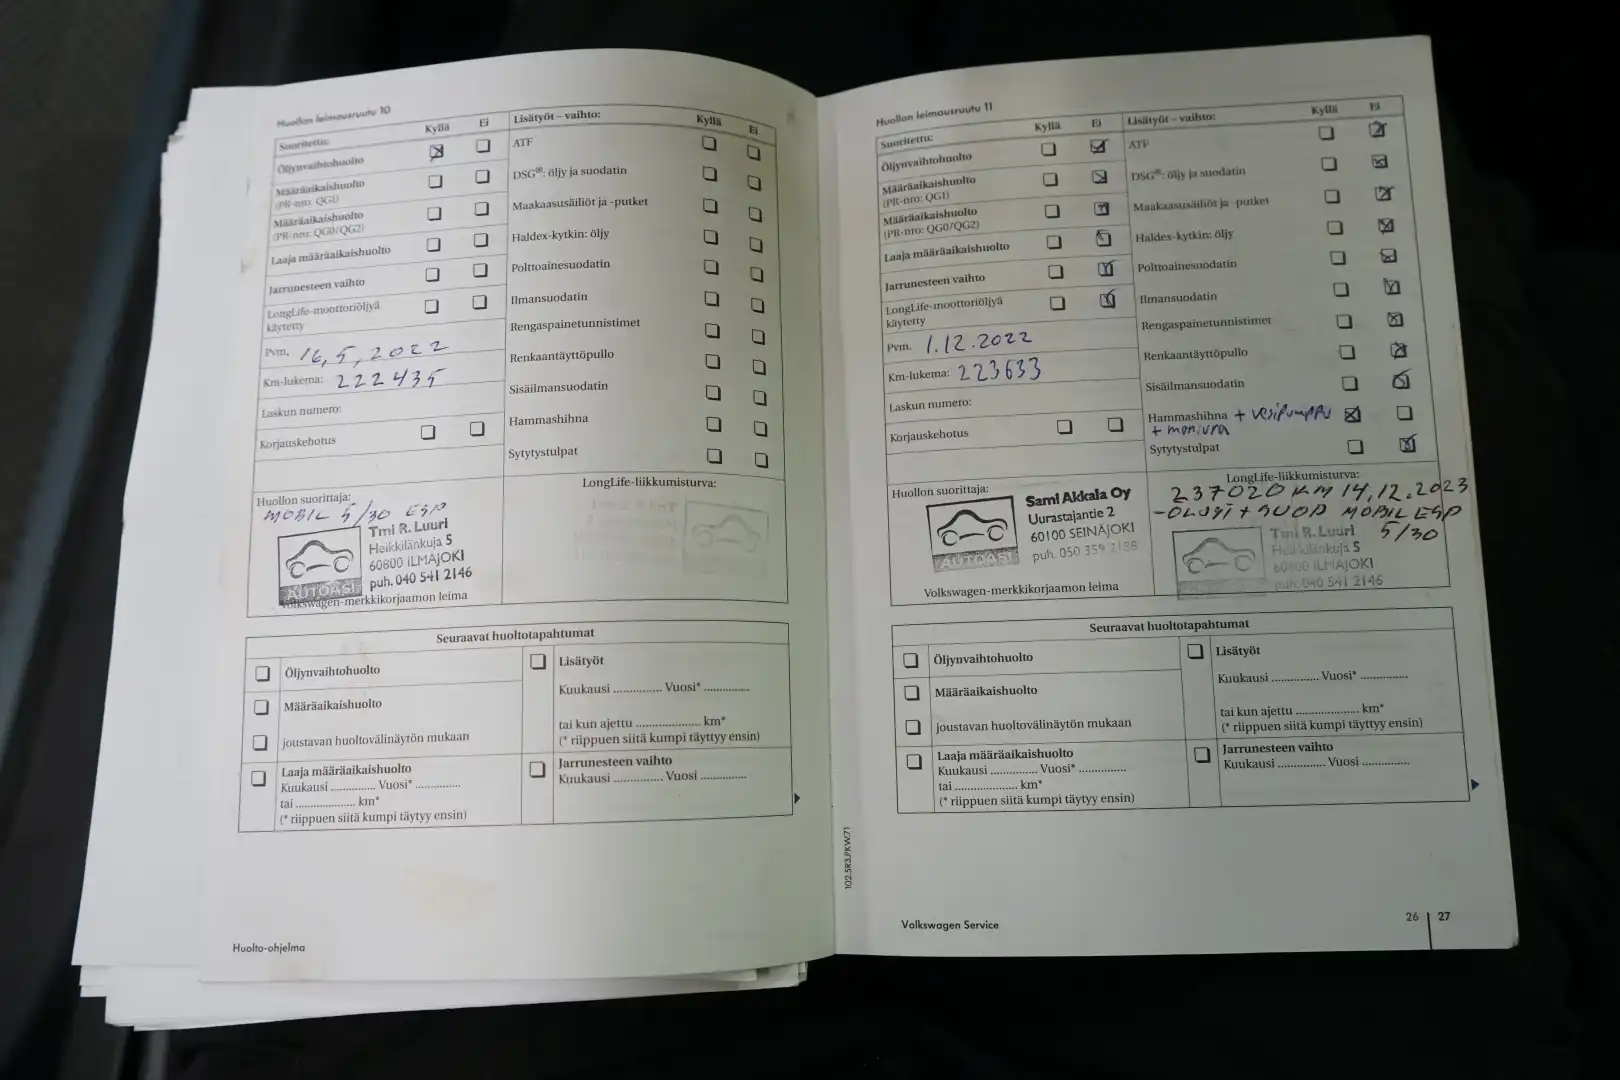 Huollon leimausruutu 10
Suoritettu: Kyllä Ei Lisätyöt – vaihto: Kyllä Ei
Öljynvaihtohuolto
Määräaikaishuolto
(PR-nro: QG1)
Määräaikaishuolto
(PR-nro: QG0/QG2)
Laaja määräaikaishuolto
Jarrunesteen vaihto
LongLife-moottoriöljyä
käytetty
Pvm. 16,5,2022
Km-lukema: 222435
Laskun numero:
Korjauskehotus
ATF
DSG®: öljy ja suodatin
Maakaasusäiliöt ja -putket
Haldex-kytkin: öljy
Polttoainesuodatin
Ilmansuodatin
Rengaspainetunnistimet
Renkaantäyttöpullo
Sisäilmansuodatin
Hammashihna
Sytytystulpat
Huollon suorittaja:
MOBIL 5/30 ESP
Tmi R. Luuri
Heikkilänkuja 5
60800 ILMAJOKI
puh. 040 541 2146
AUTOASI
Volkswagen-merkkikorjaamon leima
LongLife-liikkumisturva:
Seuraavat huoltotapahtumat
Öljynvaihtohuolto
Määräaikaishuolto
joustavan huoltovälinäytön mukaan
Laaja määräaikaishuolto
Kuukausi .............. Vuosi* ..............
tai .................... km*
(* riippuen siitä kumpi täytyy ensin)
Lisätyöt
Kuukausi ............... Vuosi* ..............
tai kun ajettu .................... km*
(* riippuen siitä kumpi täyttyy ensin)
Jarrunesteen vaihto
Kuukausi ............... Vuosi ..............
Huolto-ohjelma
Huollon leimausruutu 11
Suoritettu: Kyllä Ei Lisätyöt – vaihto: Kyllä Ei
Öljynvaihtohuolto
Määräaikaishuolto
(PR-nro: QG1)
Määräaikaishuolto
(PR-nro: QG0/QG2)
Laaja määräaikaishuolto
Jarrunesteen vaihto
LongLife-moottoriöljyä
käytetty
Pvm. 1.12.2022
Km-lukema: 223633
Laskun numero:
Korjauskehotus
ATF
DSG®: öljy ja suodatin
Maakaasusäiliöt ja -putket
Haldex-kytkin: öljy
Polttoainesuodatin
Ilmansuodatin
Rengaspainetunnistimet
Renkaantäyttöpullo
Sisäilmansuodatin
Hammashihna + vesipumppu
+ moniura
Sytytystulpat
Huollon suorittaja:
Sami Akkala Oy
Uurastajantie 2
60100 SEINÄJOKI
puh. 050 359 2188
AUTOASI
Volkswagen-merkkikorjaamon leima
LongLife-liikkumisturva:
237020 KM 14,12.2023
- ÖLJYT + SUOD MOBIL ESP
5/30
Tmi R. Luuri
Heikkilänkuja 5
60800 ILMAJOKI
puh. 040 541 2146
Seuraavat huoltotapahtumat
Öljynvaihtohuolto
Määräaikaishuolto
joustavan huoltovälinäytön mukaan
Laaja määräaikaishuolto
Kuukausi .............. Vuosi* ..............
tai .................... km*
(* riippuen siitä kumpi täytyy ensin)
Lisätyöt
Kuukausi ............... Vuosi* ..............
tai kun ajettu .................... km*
(* riippuen siitä kumpi täyttyy ensin)
Jarrunesteen vaihto
Kuukausi ............... Vuosi ..............
102.5R3.PKW.71
Volkswagen Service
26 | 27